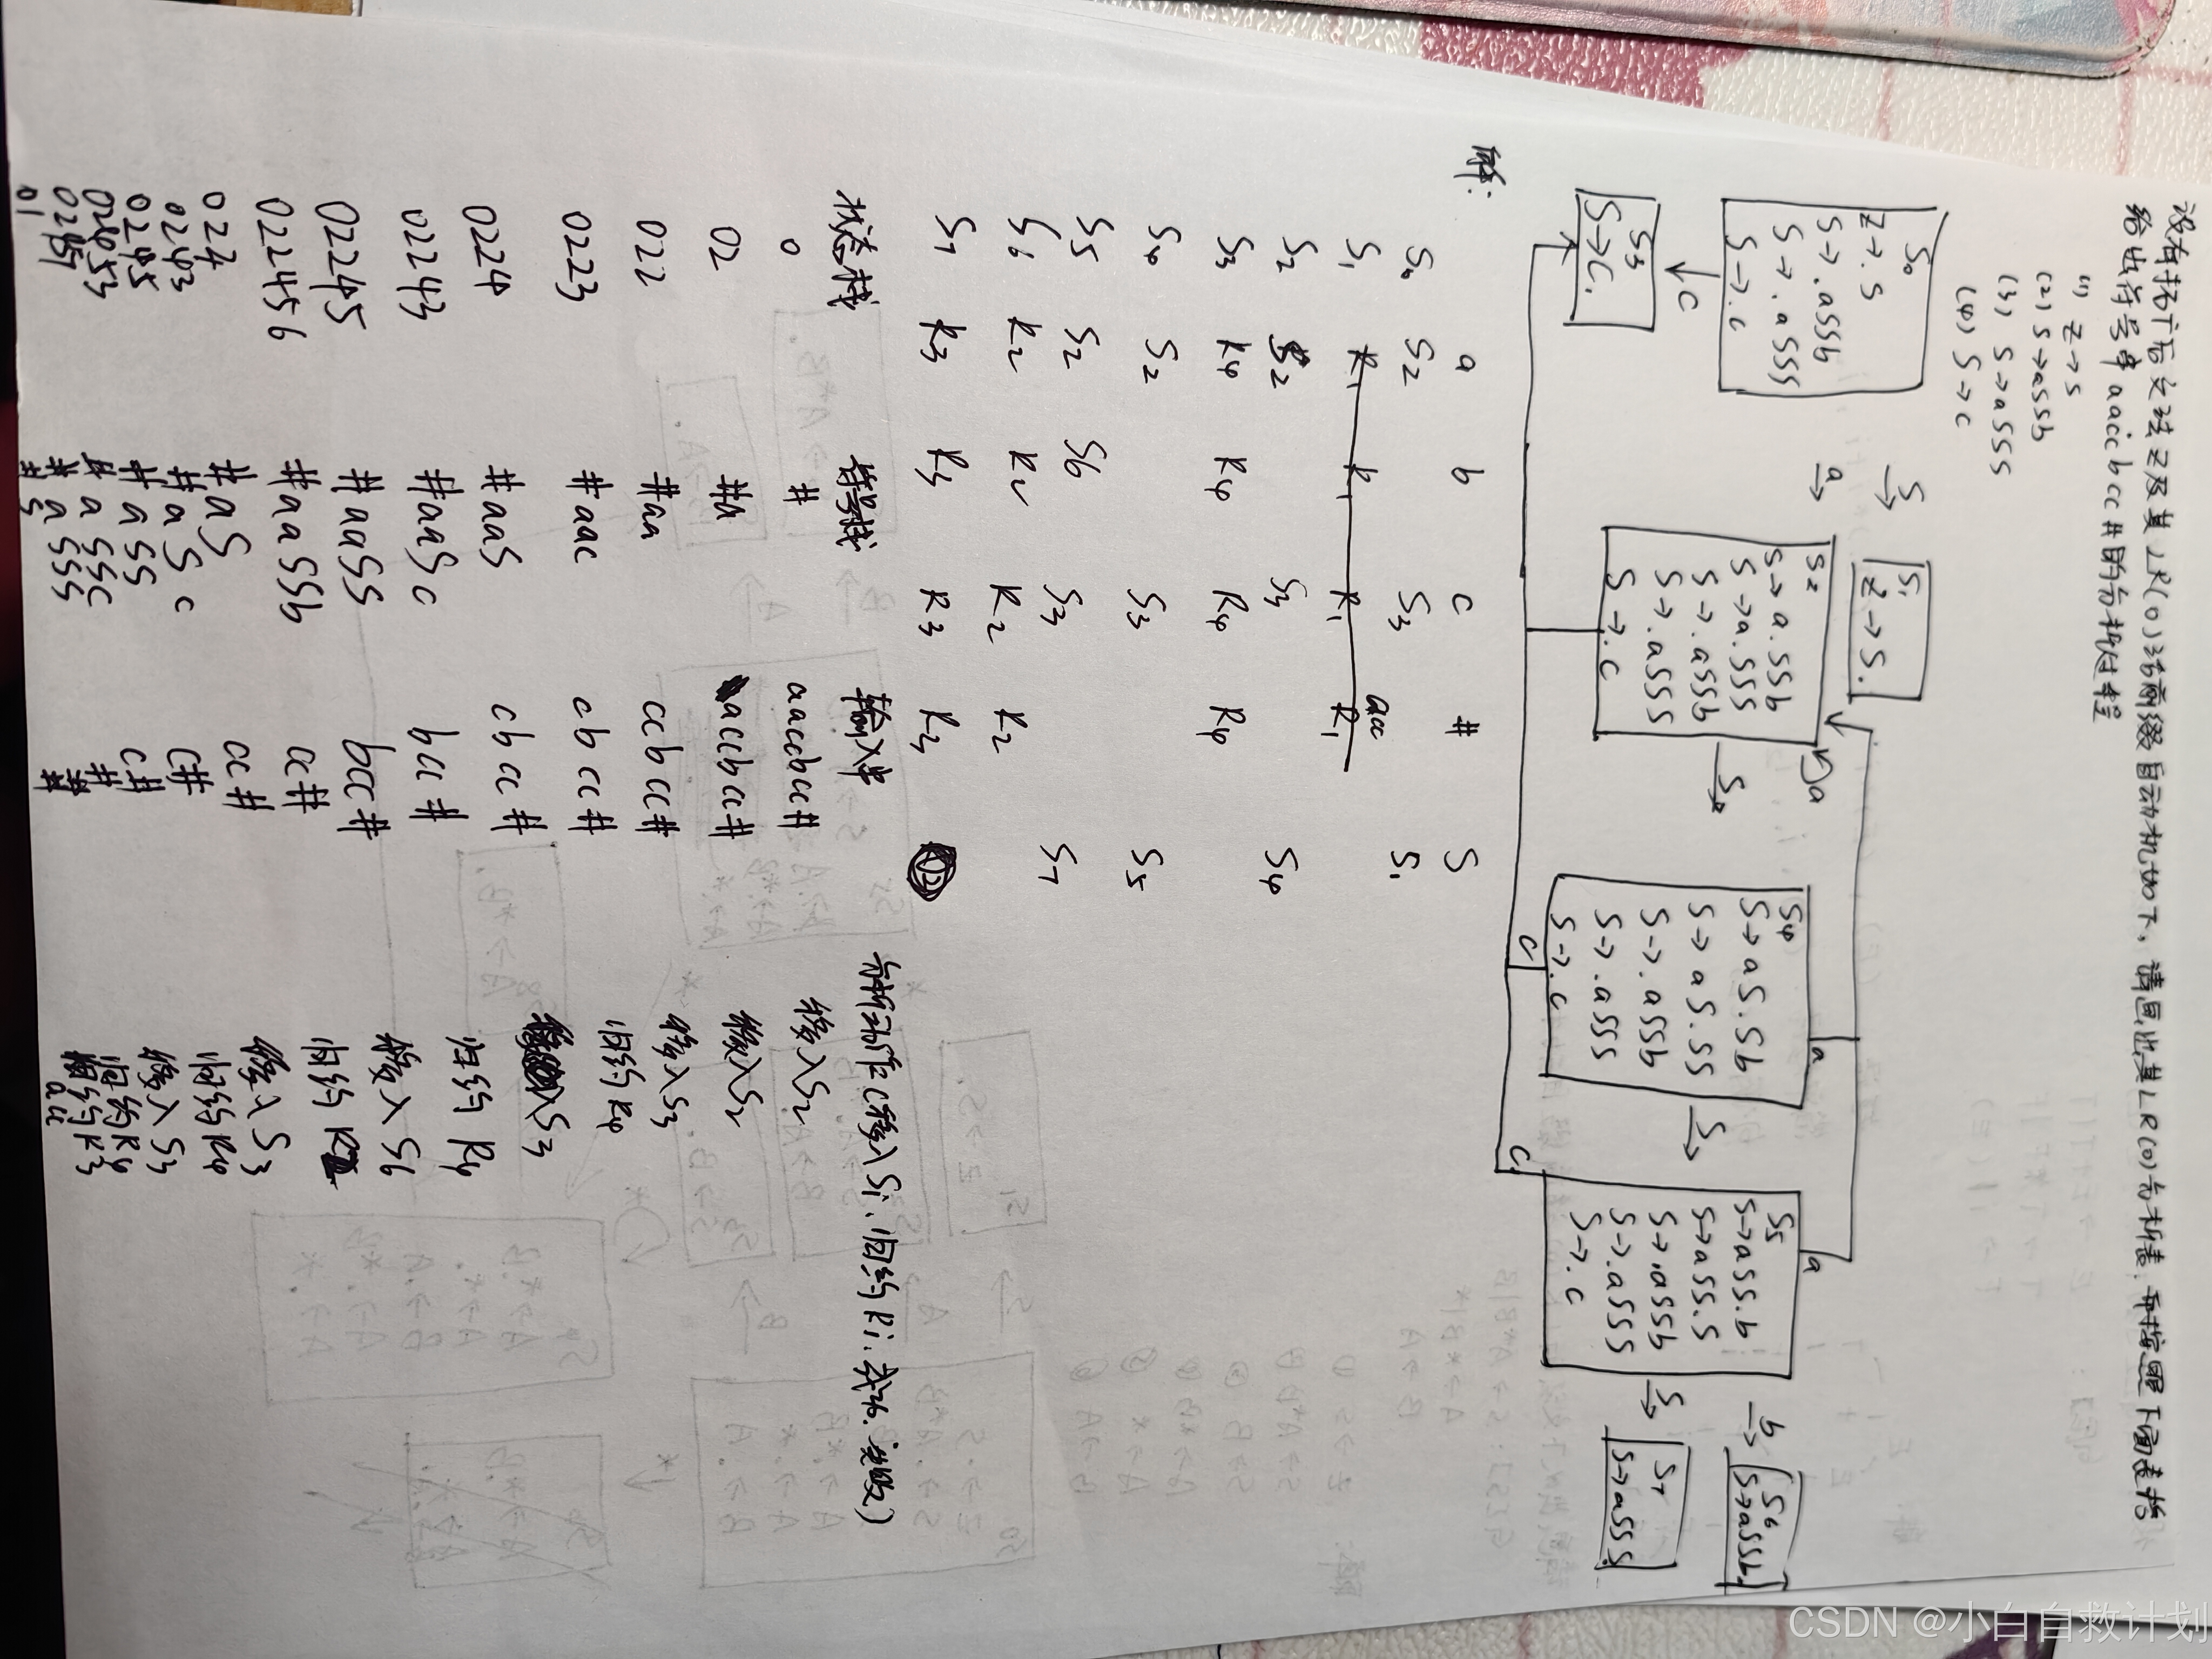 设有拓广后文法Z及其LR(0)活前缀自动机如下，请画出其LR(0)分析表，并按照下面表格
给出符号串aaccbcc#的分析过程
(1) Z→S
(2) S→aSSb
(3) S→aSSS
(4) S→c
解：
S0
Z→.S
S→.aSSb
S→.aSSS
S→.c
S
S1
Z→S.
a
S2
S→a.SSb
S→a.SSS
S→.aSSb
S→.aSSS
S→.c
a
S
S4
S→aS.Sb
S→aS.SS
S→.aSSb
S→.aSSS
S→.c
a
S
S5
S→aSS.b
S→aSS.S
S→.aSSb
S→.aSSS
S→.c
a
b
S6
S→aSSb.
S
S7
S→aSSS.
c
S3
S→c.
c
c
a b c # S
S0 S2 S3 S1
S1 R1 R1 R1 R1 acc
S2 S2 S3 S4
S3 R4 R4 R4 R4
S4 S2 S3 S5
S5 S2 S6 S3 S7
S6 R2 R2 R2 R2
S7 R3 R3 R3 R3
状态栈 符号栈 输入串 分析动作(移入Si,归约Ri,成功,失败)
0 # aaccbcc# 移入S2
02 #a accbcc# 移入S2
022 #aa ccbcc# 移入S3
0223 #aac cbcc# 归约R4
0224 #aaS cbcc# S3
02243 #aaSc bcc# 归约R4
02245 #aaSS bcc# 移入S6
022456 #aaSSb cc# 归约R2
024 #aS cc# 移入S3
0243 #aSc c# 归约R4
0245 #aSS c# 移入S3
02453 #aSSc # 归约R4
02457 #aSSS # 归约R3
01 #S # acc
CSDN @小白自救计划